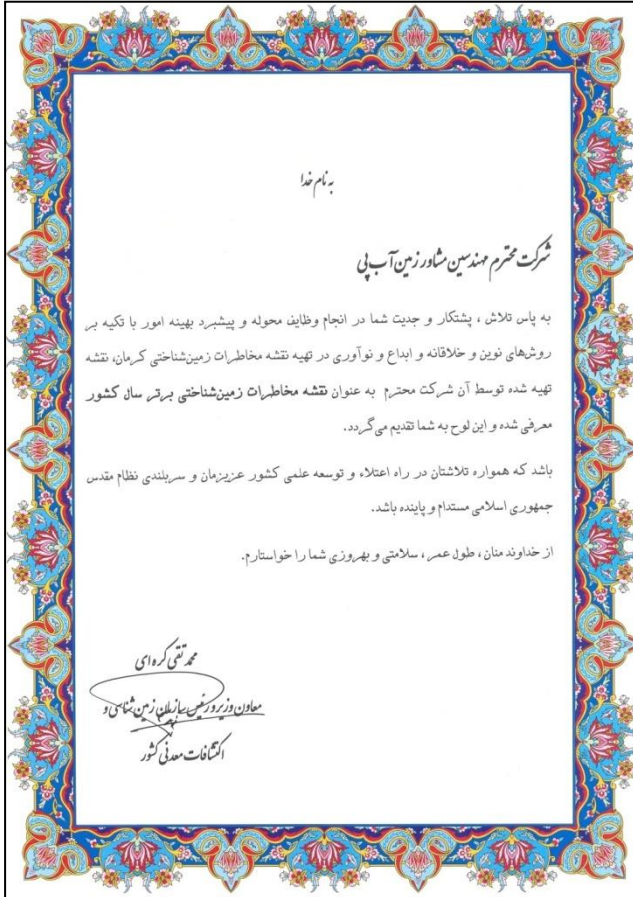 به نام خدا
شرکت محترم مهندسین مشاور زمین آب پی
به پاس تلاش ، پشتکار و جدیت شما در انجام وظایف محوله و پیشبرد بهینه امور با تکیه بر
روش‌های نوین و خلاقانه و ابداع و نوآوری در تهیه نقشه مخاطرات زمین‌شناختی کرمان، نقشه
تهیه شده توسط آن شرکت محترم به عنوان نقشه مخاطرات زمین‌شناختی برتر سال کشور
معرفی شده و این لوح به شما تقدیم می‌گردد.
باشد که همواره تلاشتان در راه اعتلاء و توسعه علمی کشور عزیزمان و سربلندی نظام مقدس
جمهوری اسلامی مستدام و پاینده باشد.
از خداوند منان ، طول عمر ، سلامتی و بهروزی شما را خواستارم.
محمد تقی کره ای
معاون وزیر و رئیس سازمان زمین شناسی و
اکتشافات معدنی کشور